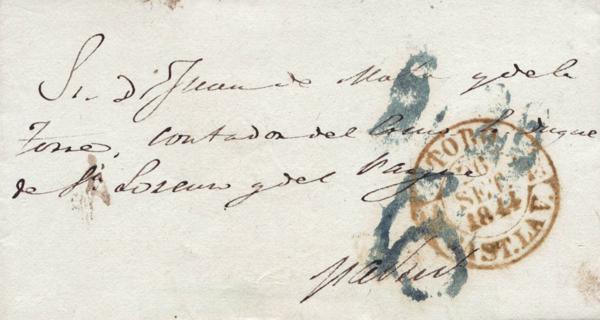 Sr. Dn Juan de Mata y de la
Torre, Contador del Exmo Sr. Duque
de Sn Lorenzo y del Parque
TORRE
6
SET
1844
CAST. LA V.